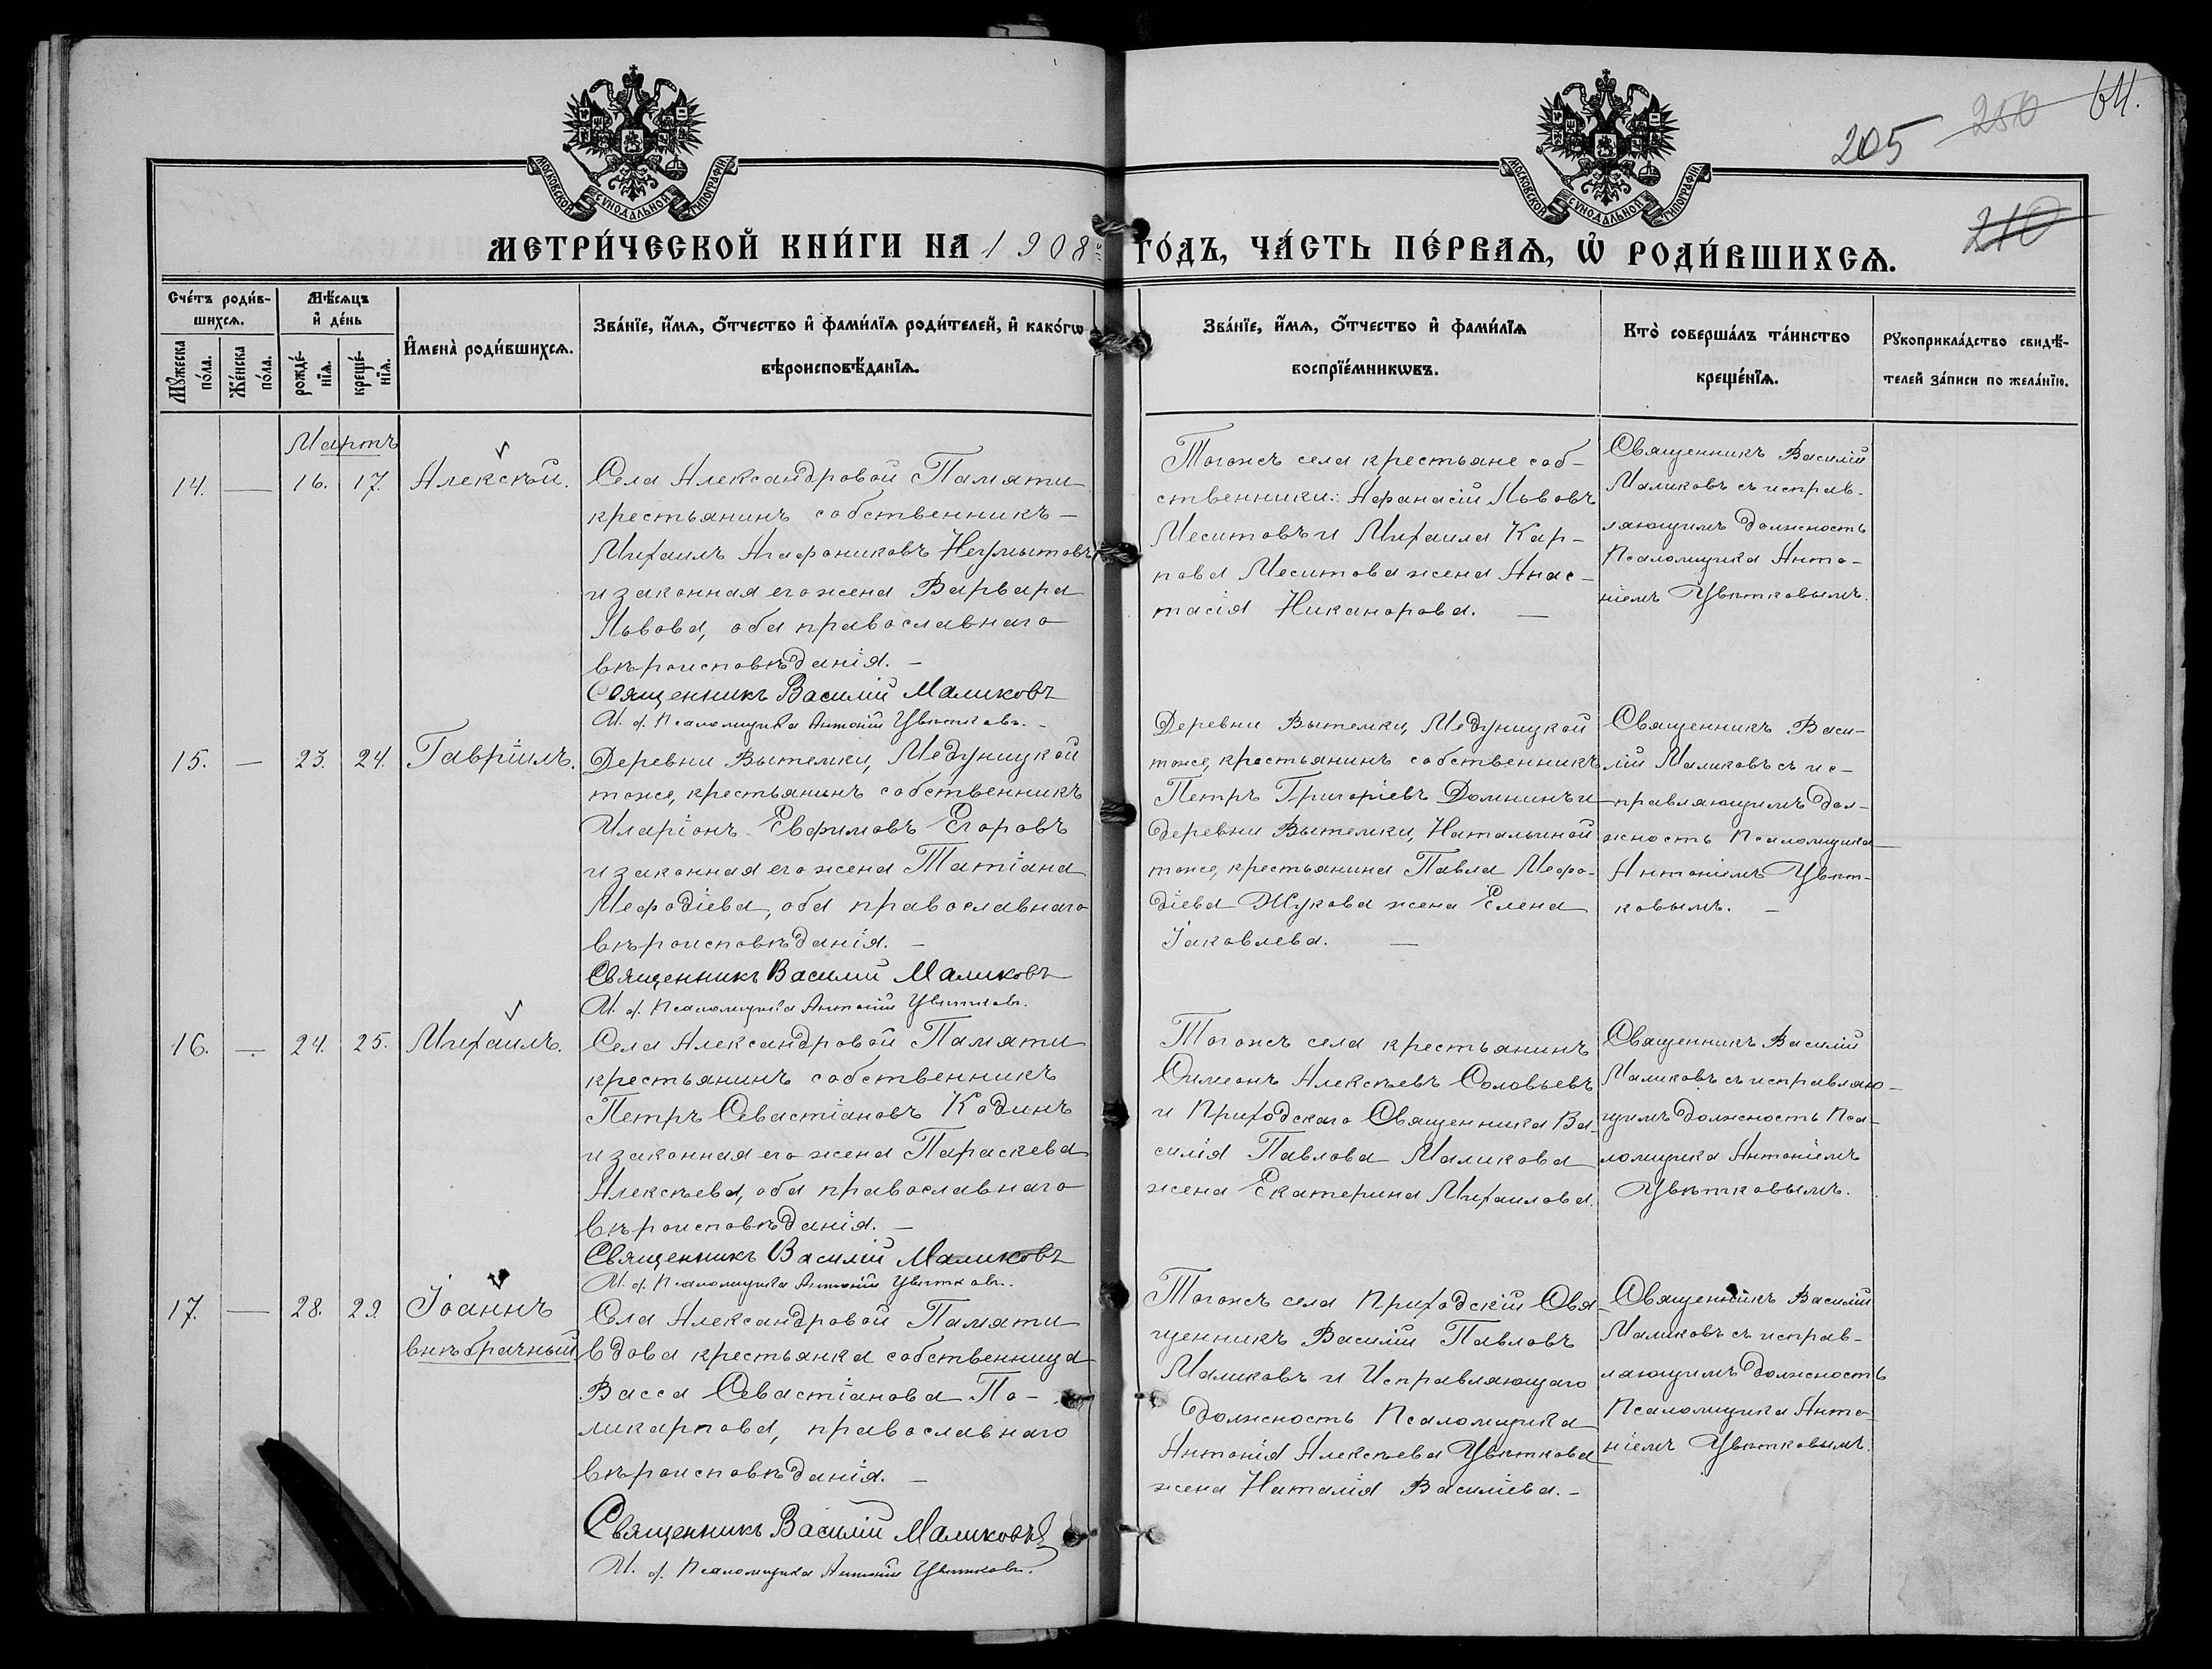 205 250 64.
210
МОСКОВСКОЙ СѴНОДАЛЬНОЙ ТИПОГРАФІИ
МОСКОВСКОЙ СѴНОДАЛЬНОЙ ТИПОГРАФІИ
МЕТРИ́ЧЕСКОЙ КНИ́ГИ НА 1908й ГО́ДЪ, ЧА́СТЬ ПЕ́РВАѦ, Ѡ҆ РОДИ́ВШИХСѦ.
Сче́тъ роди́в-
шихсѧ.
Мꙋ́жеска
по́ла.
Же́нска
по́ла.
Мѣ́сѧцъ
и҆ де́нь
рожде́-
нїѧ.
креще́-
нїѧ.
И҆мена̀ роди́вшихсѧ.
Зва́нїе, и҆́мѧ, ѻ҆́тчество и҆ фами́лїѧ роди́телей, и҆ како́гѡ
вѣроисповѣ́данїѧ.
Зва́нїе, и҆́мѧ, ѻ҆́тчество и҆ фами́лїѧ
воспрїе́мникѡвъ.
Кто̀ соверша́лъ та́инство
креще́нїѧ.
Рꙋкоприкла́дство свидѣ́-
телей за́писи по жела́нїю.
Мартъ
14. — 16. 17. Алексѣй.
Села Александровой Памяти
крестьянинъ собственникъ —
Михаилъ Агафониковъ Неумытовъ
и законная его жена Варвара
Львова, оба православнаго
вѣроисповѣданія. —
Священникъ Василій Маликовъ
И. д. Псаломщика Антоній Цвѣтковъ. —
Тогожъ села крестьяне соб-
ственники: Афанасій Львовъ
Меситовъ и Михаила Кар-
пова Меситова жена Анас-
тасія Никанорова. —
Священникъ Василій
Маликовъ съ исправ-
ляющимъ должность
Псаломщика Анто-
ніемъ Цвѣтковымъ.
15. — 23. 24. Гавріилъ.
Деревни Вытемки, Медуницкой
тоже, крестьянинъ собственникъ
Иларіонъ Евфимовъ Егоровъ
и законная его жена Татіана
Мефодіева, оба православнаго
вѣроисповѣданія. —
Священникъ Василій Маликовъ
И. д. Псаломщика Антоній Цвѣтковъ.
Деревни Вытемки, Медуницкой
тоже, крестьянинъ собственникъ
Петръ Григоріевъ Домнинъ и
деревни Вытемки, Натальиной
тоже, крестьянина Павла Мефо-
діева Жукова жена Елена
Іаковлева. —
Священникъ Васи-
лій Маликовъ съ ис-
правляющимъ дол-
жность Псаломщика
Антоніемъ Цвѣт-
ковымъ. —
16. — 24. 25. Михаилъ.
Села Александровой Памяти
крестьянинъ собственникъ
Петръ Севастіановъ Кодинъ
и законная его жена Параскева
Алексѣева, оба православнаго
вѣроисповѣданія. —
Священникъ Василій Маликовъ
И. д. Псаломщика Антоній Цвѣтковъ.
Тогожъ села крестьянинъ
Симеонъ Алексѣевъ Соловьевъ
и Приходскаго Священника Ва-
силія Павлова Маликова
жена Екатерина Михаилова.
Священникъ Василій
Маликовъ съ исправляю-
щимъ должность Пса-
ломщика Антоніемъ
Цвѣтковымъ.
17. — 28. 29. Іоаннъ
внѣбрачный
Села Александровой Памяти
вдова крестьянка собственница
Васса Севастіанова По-
ликарпова, православнаго
вѣроисповѣданія. —
Священникъ Василій Маликовъ
И. д. Псаломщика Антоній Цвѣтковъ.
Тогожъ села Приходскій Свя-
щенникъ Василій Павловъ
Маликовъ и Исправляющаго
должность Псаломщика
Антонія Алексѣева Цвѣткова
жена Наталія Василіева. —
Священникъ Василій
Маликовъ съ исправ-
ляющимъ должность
Псаломщика Анто-
ніемъ Цвѣтковымъ.